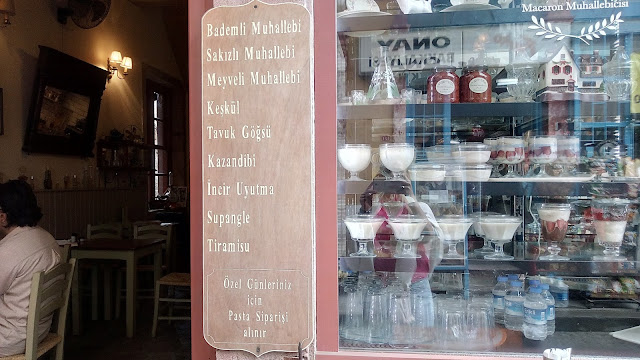 Bademli Muhallebi
Sakızlı Muhallebi
Meyveli Muhallebi
Keşkül
Tavuk Göğsü
Kazandibi
İncir Uyutma
Supangle
Tiramisu
Özel Günleriniz
için
Pasta Siparişi
alınır
Macaron Muhallebicisi
ONAY